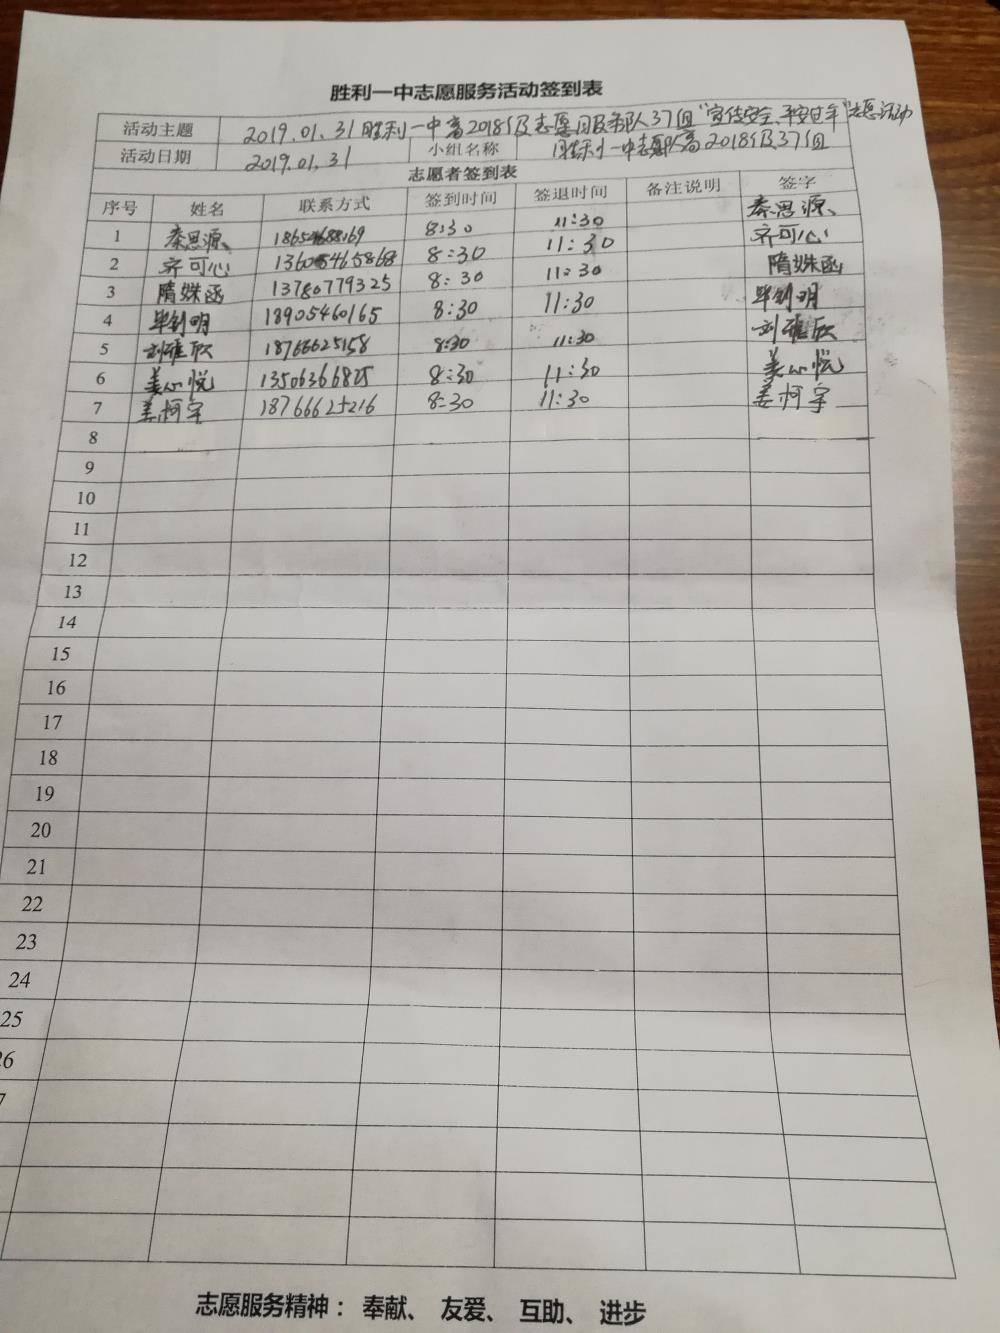 胜利一中志愿服务活动签到表
活动主题 2019.01.31胜利一中高2018级志愿服务队37组"宣传安全、平安过年"志愿活动
活动日期 2019.01.31 小组名称 胜利一中志愿队高2018级37组
志愿者签到表
序号 姓名 联系方式 签到时间 签退时间 备注说明 签字
1 秦思源 8:30 11:30 秦思源
2 齐可心 8:30 11:30 齐可心
3 隋姝函 13780779325 8:30 11:30 隋姝函
4 毕钊明 18905460165 8:30 11:30 毕钊明
5 刘雅欣 18766625158 8:30 11:30 刘雅欣
6 姜心悦 13506366825 8:30 11:30 姜心悦
7 姜柯宇 18766625216 8:30 11:30 姜柯宇
8
9
10
11
12
13
14
15
16
17
18
19
20
21
22
23
24
25
26
7
志愿服务精神： 奉献、 友爱、 互助、 进步